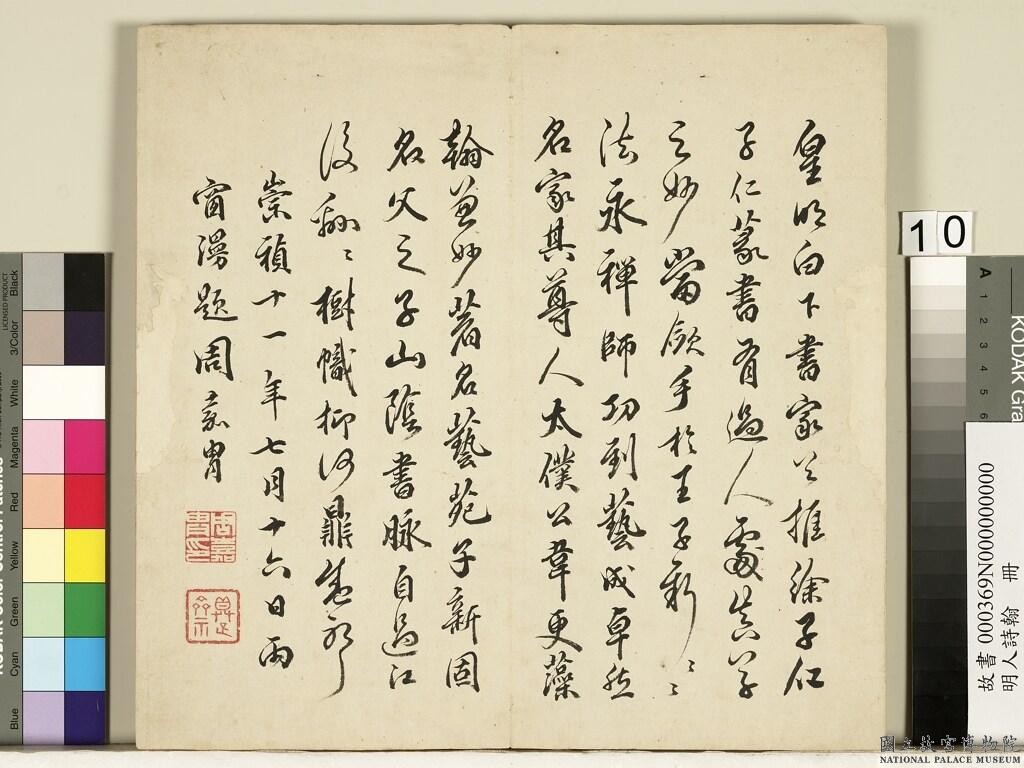 皇明白下書家必推徐子仁
子仁篆書有過人處真草
之妙當斂手於王子新子新
法永禪師功到藝成卓然
名家其尊人太僕公韋更藻
翰並妙著名藝苑子新固
名父之子山陰書脉自過江
後翩翩樹幟抑何鼎盛耶
崇禎十一年七月十六日雨
窗漫題周嘉胄
周嘉
胄印
10
國立故宮博物院
NATIONAL PALACE MUSEUM
故書 000369N000000000
明人詩翰 冊
KODAK Gra
A 1 2 3 4 5 6
LICENSED PRODUCT
Black
3/Color
White
Magenta
Red
Yellow
Green
Cyan
Blue